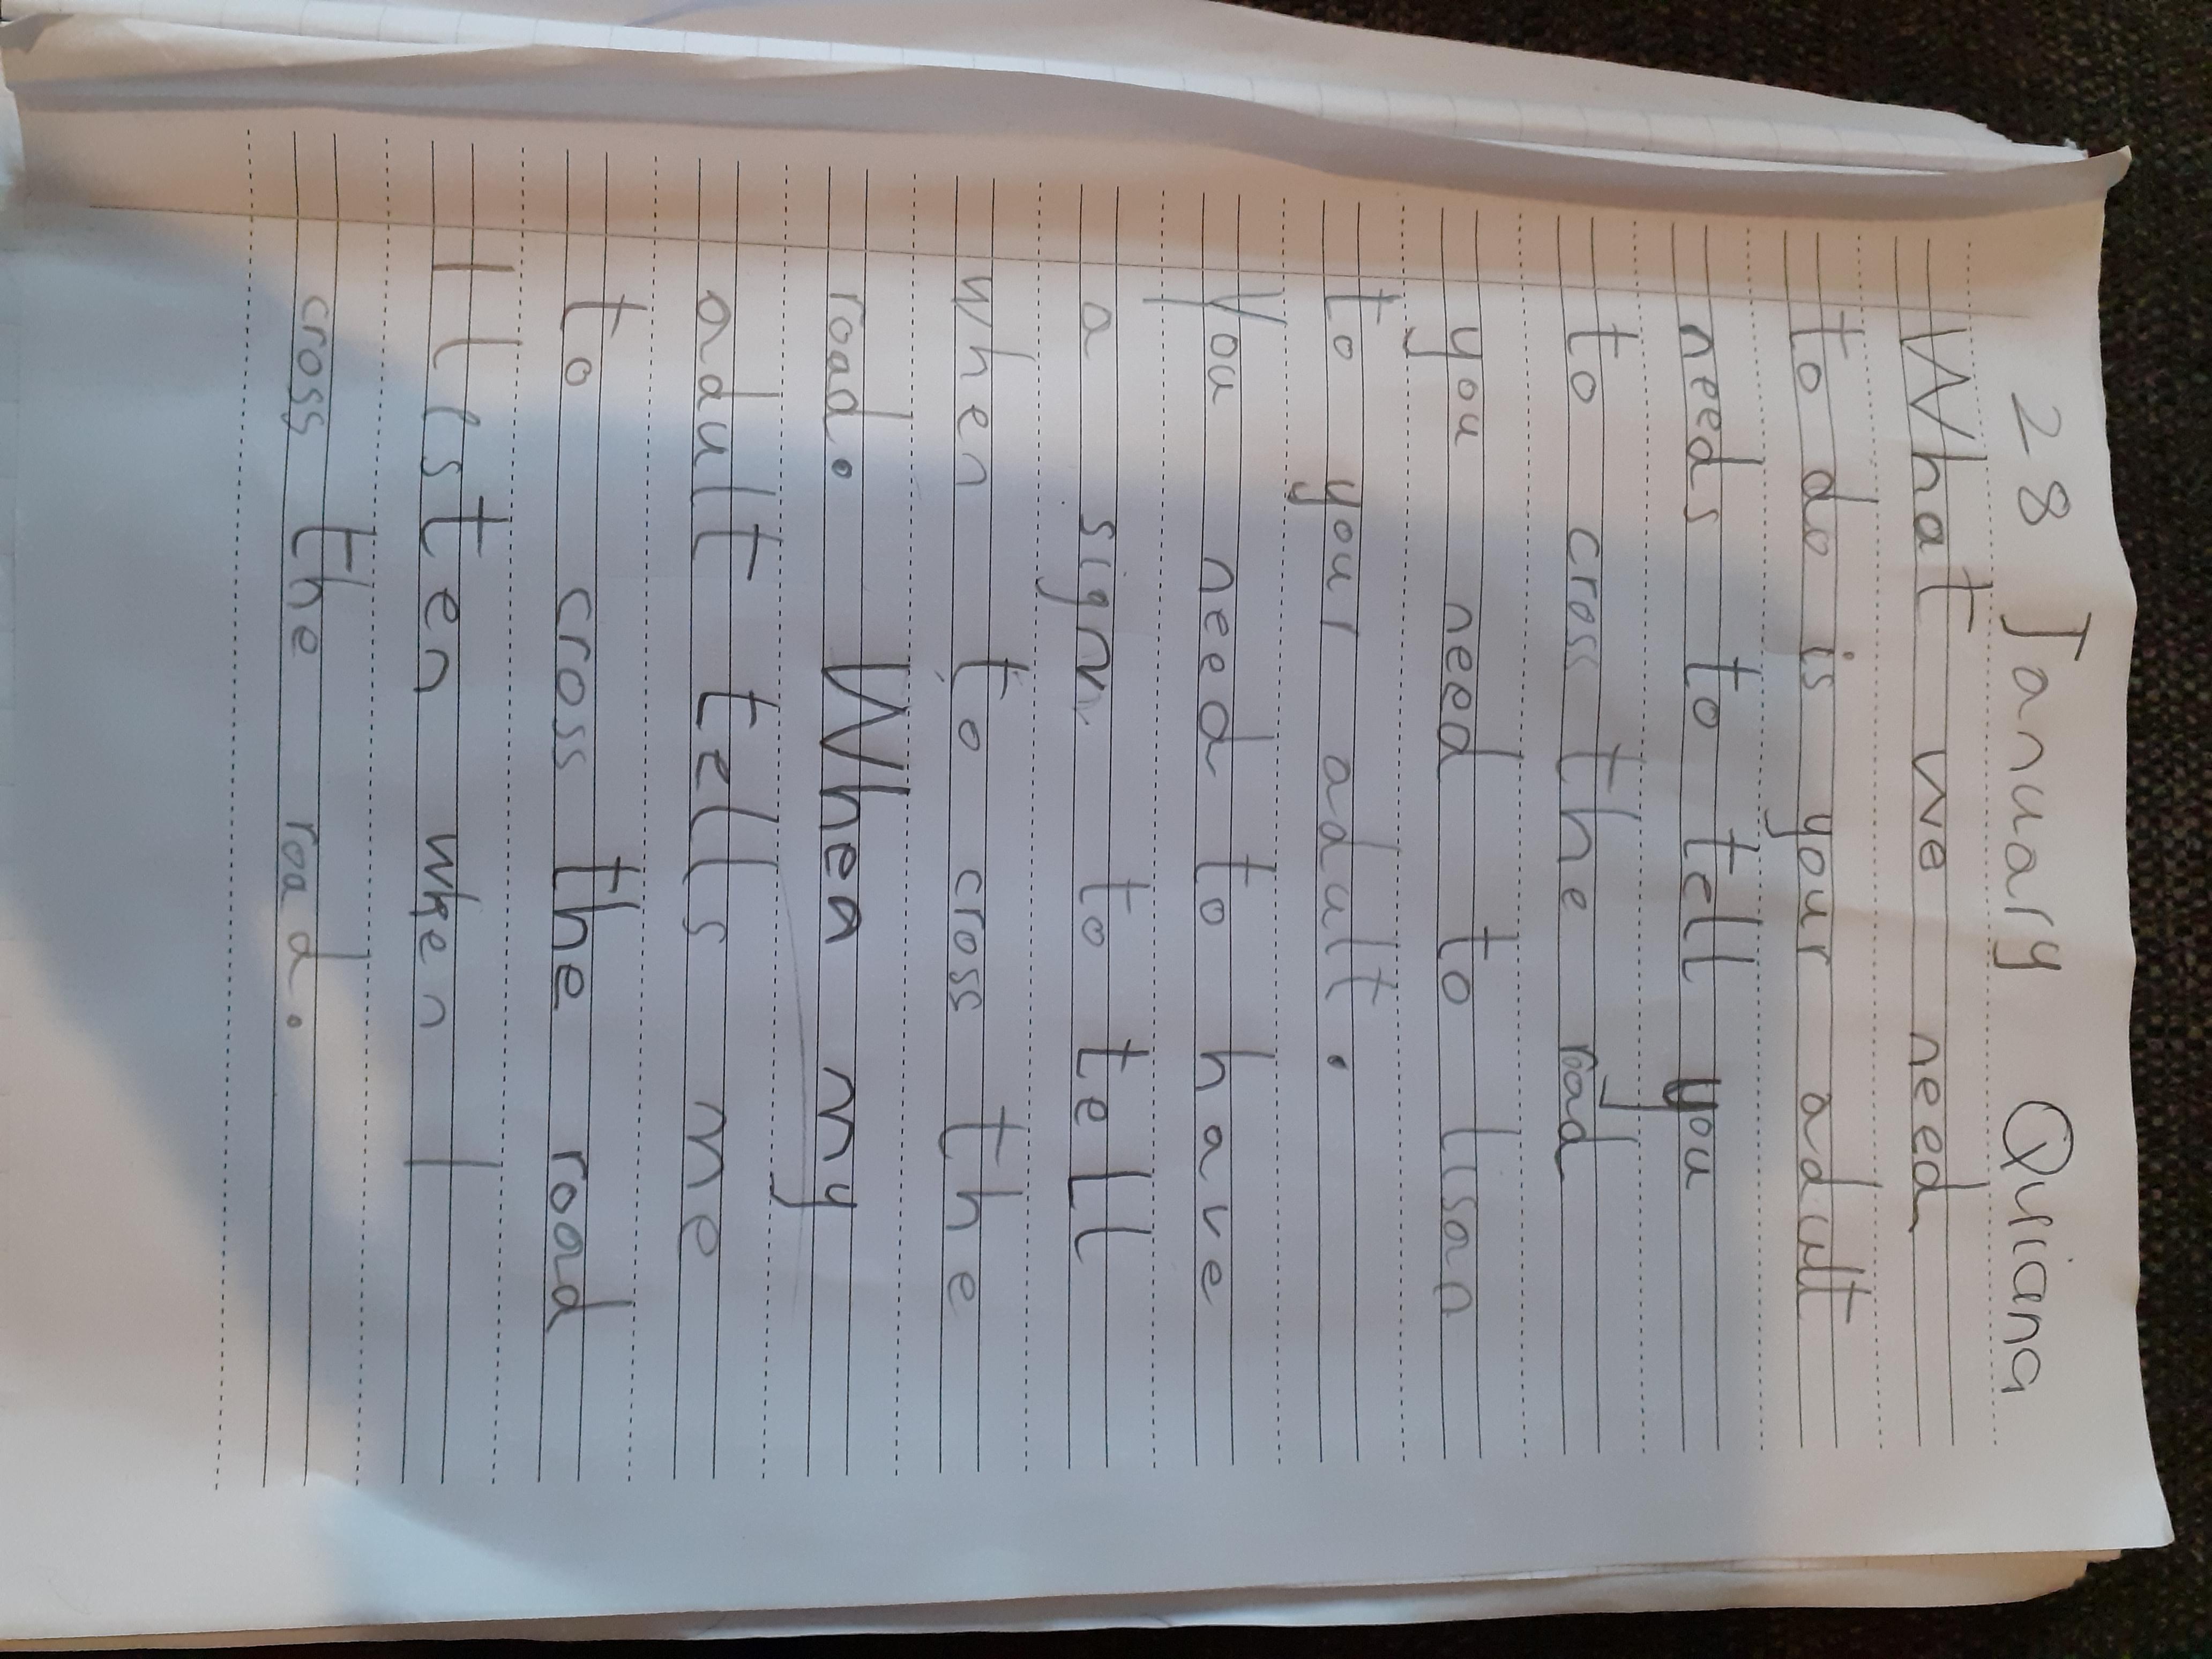 28 January Quiana
What we need
to do is your adult
needs to tell you
to cross the road
you need to lisan
to your adult.
You need to have
a sign to tell
when to cross the
road. When my
adult tells me
to cross the road
I listen when I
cross the road.